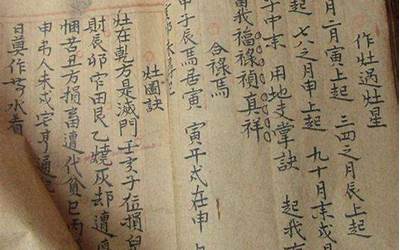 作灶過灶星
月二月寅上起 三四之月辰上起
起 七八之月申上起 九十月末戌
子中末 用地支掌訣 起我
我福祿禎真祥
合祿馬
子辰馬居寅 寅午戌在申
灶圖訣
灶在乾方是滅門 壬亥子位損
財辰卯 艮乙燒灰却遭
苦丑方損畜遭 貧巳丙
申 人未戌 亨通
日 作 水者